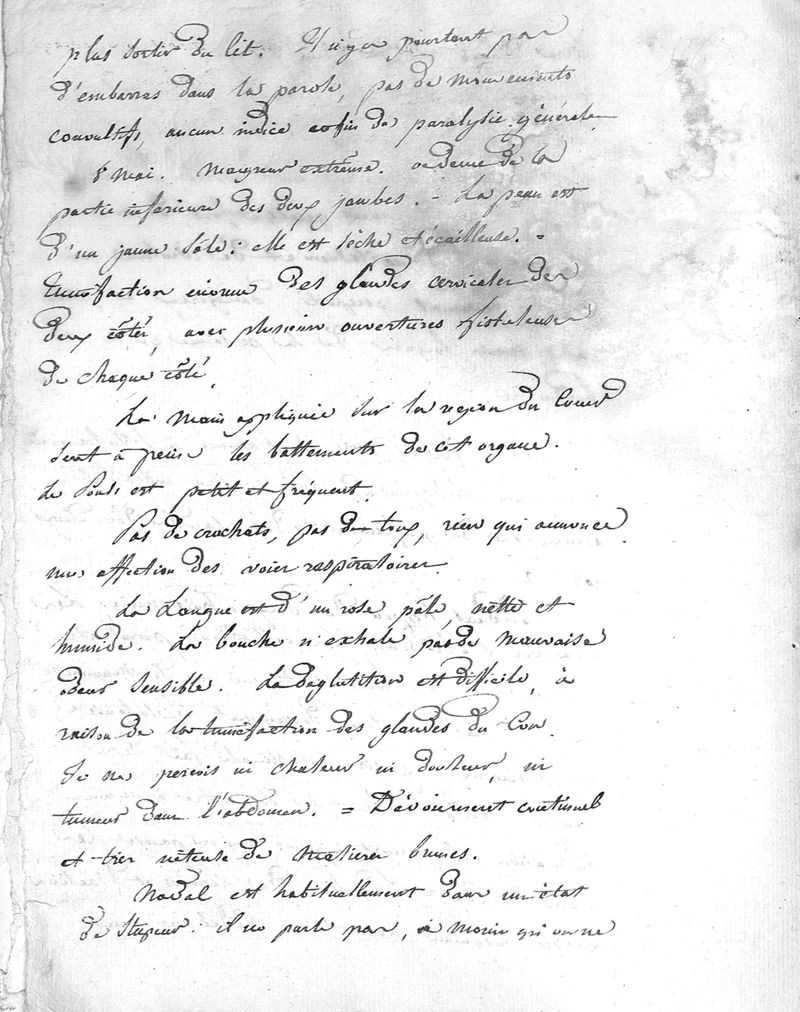 plus sortir du lit. Il n'y a pourtant pas
d'embarras dans la parole, pas de mouvements
convulsifs, aucun indice enfin de paralysie générale
mai. Maigreur extrême. oedeme de la
partie inferieure des deux jambes. - La peau est
d'un jaune sâle : elle est sèche et écailleuse. =
Tuméfaction énorme des glandes cervicales des
deux côtés, avec plusieurs ouvertures fistuleuses
de chaque côté.
La main appliquée sur la region du Coeur
sent à peine les battements de cet organe.
Le Pouls est petit et fréquent.
Pas de crachats, pas de toux, rien qui annonce
une affection des voies respiratoires.
La Langue est d'un rose pâle, nette et
humide. La bouche n'exhale pas de mauvaise
odeur sensible. La déglutition est difficile, à
raison de la tuméfaction des glandes du Cou.
Je ne perçois ni chaleur ni douleur, ni
tumeur dans l'abdomen. = Dévoiement continuel
et très de matières brunes.
Nadal est habituellement dans un état
de stupeur : il ne parle pas, à moins qu'on ne